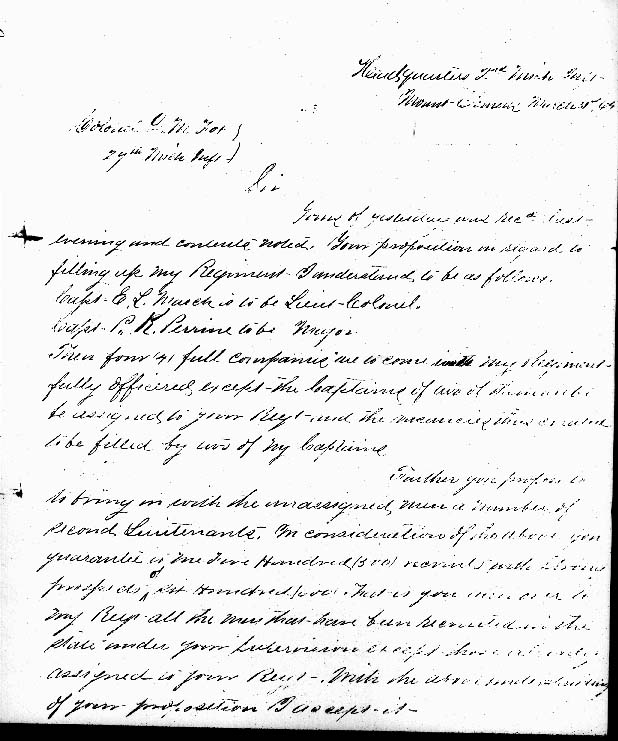 Headquarters 2nd Mich Inf-
Mount Clemens March
Colonel D. M. Fox }
27th Mich Inf }
Sir
Yours of yesterday was recd last-
evening and contents noted. Your proposition in regard to
filling up my Regiment- I understand, to be as follows.
Capt- E. L. March is to be Lieut-Colonel.
Capt- P. K. Perrine to be Major
Then four (4) full companies are to come with my Regiment-
fully officered, except- the Captains of two of them are to
be assigned, to your Regt- and the vacancies thus created
to be filled by two of my Captains
Further you propose to
to bring in with the unassigned men a number of
second Lieutenants. In consideration of the above you
guarantee to me Five Hundred (500) recruits with strong
prospects of Six Hundred (600) That is you turn over to
my Regt- all the men that- have been recruited in the
state under your supervision except those already
assigned to your Regt-. With the above understanding
of your proposition I accept-it-